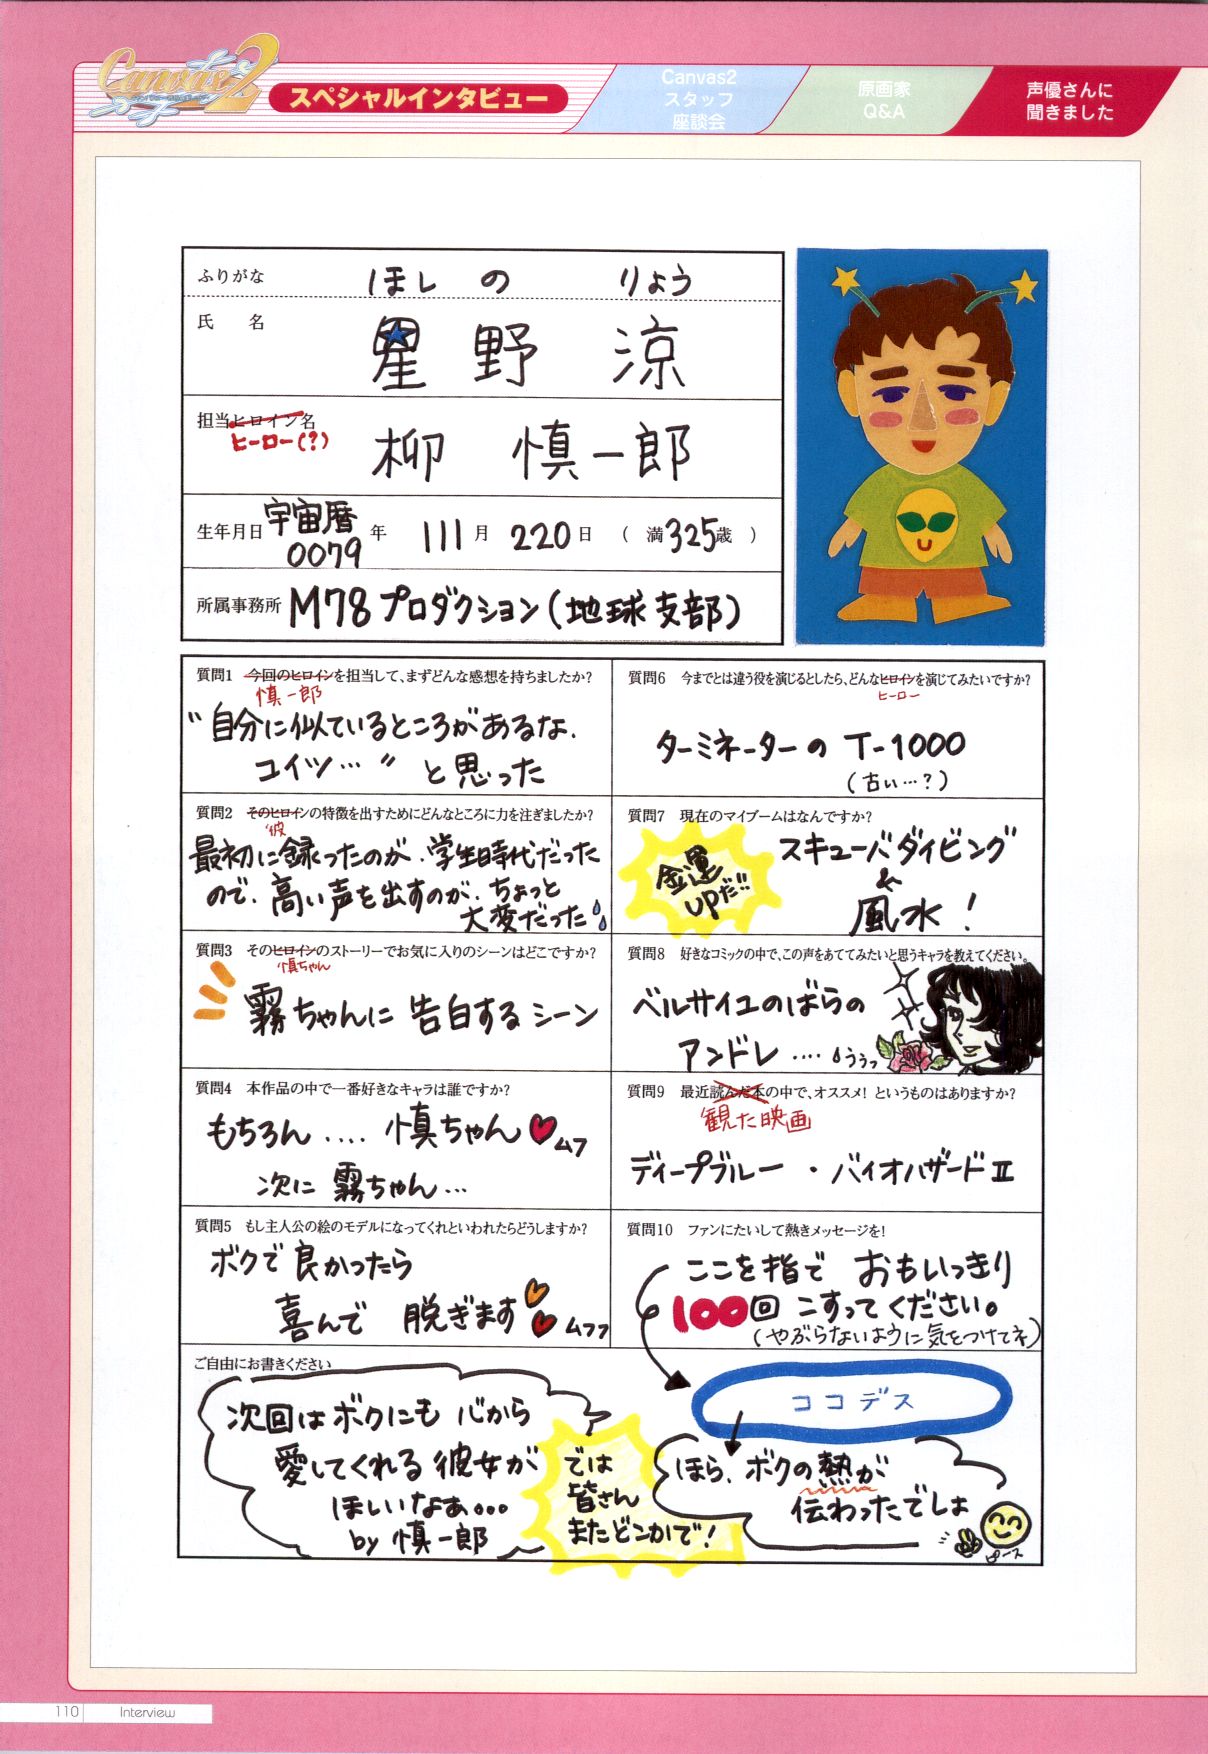 Canvas2
スペシャルインタビュー
Canvas2
スタッフ
座談会
原画家
Q&A
声優さんに
聞きました
ふりがな ほし の りょう
氏 名 星野 涼
担当ヒロイン名
ヒーロー(?)
柳 慎一郎
生年月日 宇宙暦 0079 年 111月 220日 ( 満325歳 )
所属事務所 M78プロダクション(地球支部)
質問1 今回のヒロインを担当して、まずどんな感想を持ちましたか?
慎一郎
"自分に似ているところがあるな.
コイツ…" と思った
質問2 そのヒロインの特徴を出すためにどんなところに力を注ぎましたか?
彼
最初に録ったのが、学生時代だった
ので、高い声を出すのが、ちょっと
大変だった
質問3 そのヒロインのストーリーでお気に入りのシーンはどこですか?
慎ちゃん
霧ちゃんに 告白するシーン
質問4 本作品の中で一番好きなキャラは誰ですか?
もちろん.... 慎ちゃん♥ムフ
次に 霧ちゃん…
質問5 もし主人公の絵のモデルになってくれといわれたらどうしますか?
ボクで良かったら
喜んで 脱ぎます ムフフ
質問6 今までとは違う役を演じるとしたら、どんなヒロインを演じてみたいですか?
ヒーロー
ターミネーターの T-1000
(古い…?)
質問7 現在のマイブームはなんですか?
金運
UPだ!!
スキューバダイビング
&
風水!
質問8 好きなコミックの中で、この声をあててみたいと思うキャラを教えてください。
ベルサイユのばらの
アンドレ ....ううっ
質問9 最近読んだ本の中で、オススメ! というものはありますか?
観た映画
ディープブルー ・ バイオハザードⅡ
質問10 ファンにたいして熱きメッセージを!
ここを指で おもいっきり
100回 こすってください。
(やぶらないように気をつけてネ)
ココデス
ほら、ボクの熱が
伝わったでしょ
ピース
ご自由にお書きください
次回はボクにも 心から
愛してくれる 彼女が
ほしいなぁ...
by 慎一郎
では
皆さん
またどこかで!
110 Interview